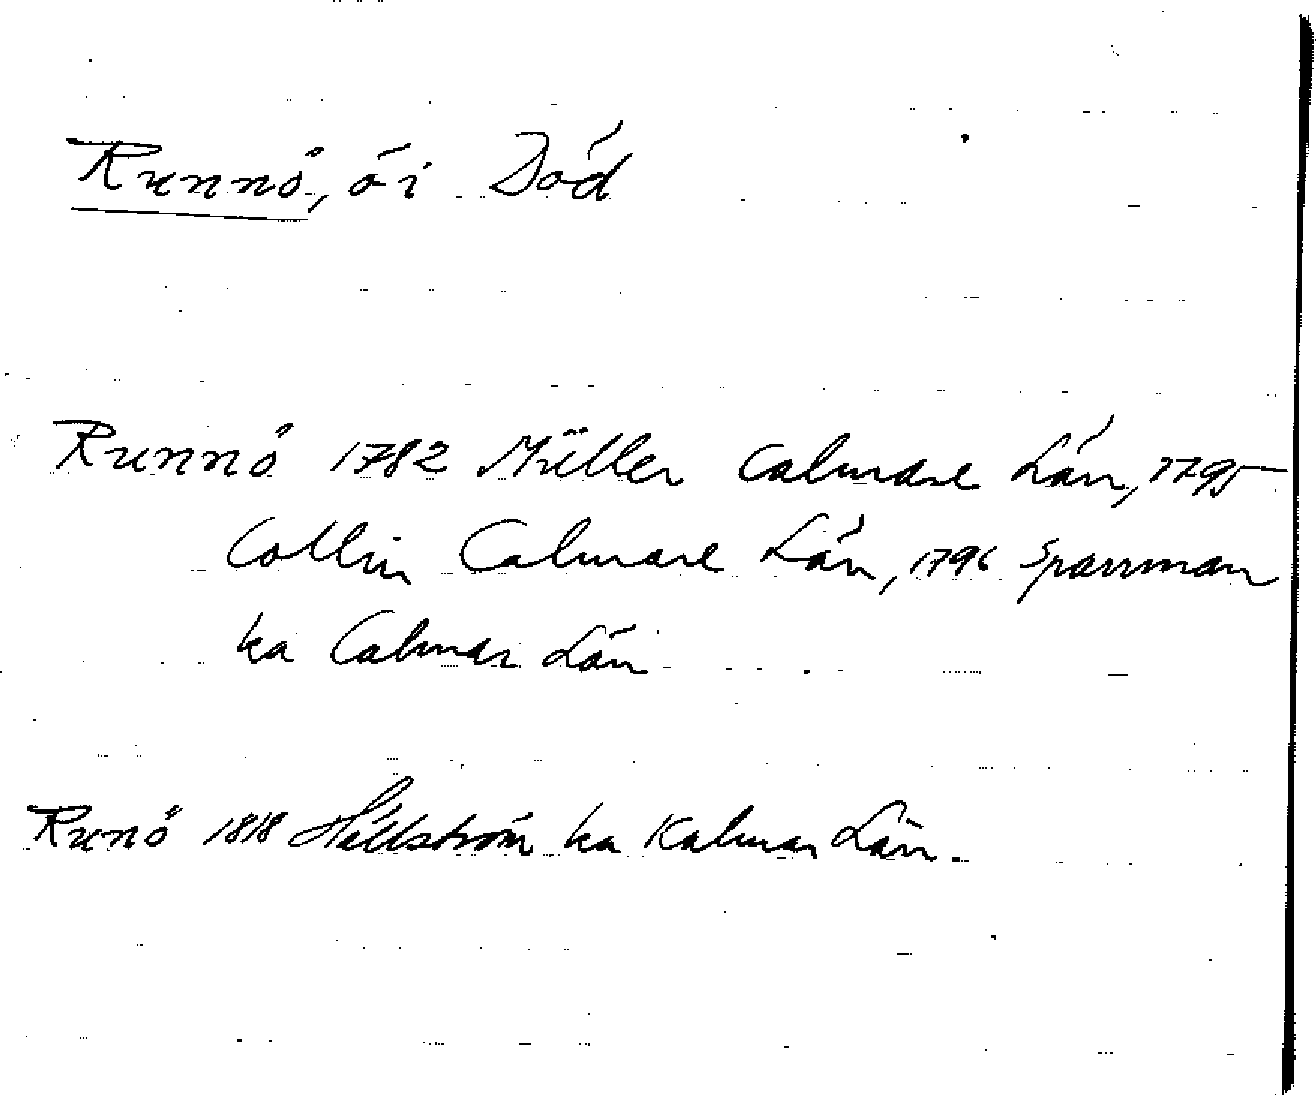 Runnö, ö i Död
Runnö 1782 Müller Calmare Län, 1795
Collin Calmare Län, 1796 Sparrman
ka Calmar Län
Runö 1818 Hällström ka Kalmar Län